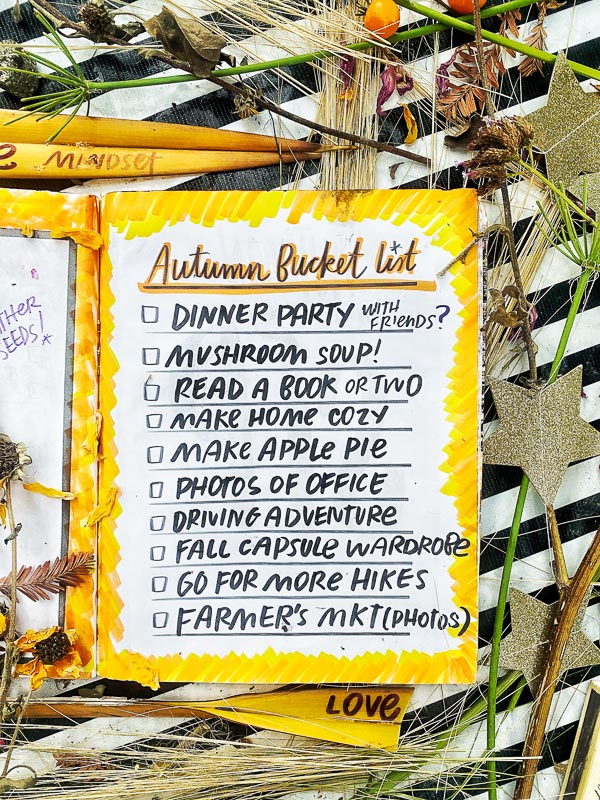 MINDSET
Autumn Bucket list*
DINNER PARTY WITH FRIENDS?
MUSHROOM SOUP!
READ A BOOK OR TWO
MAKE HOME COZY
MAKE APPLE PIE
PHOTOS OF OFFICE
DRIVING ADVENTURE
FALL CAPSULE WARDROBE
GO FOR MORE HIKES
FARMER'S MKT (PHOTOS)
LOVE